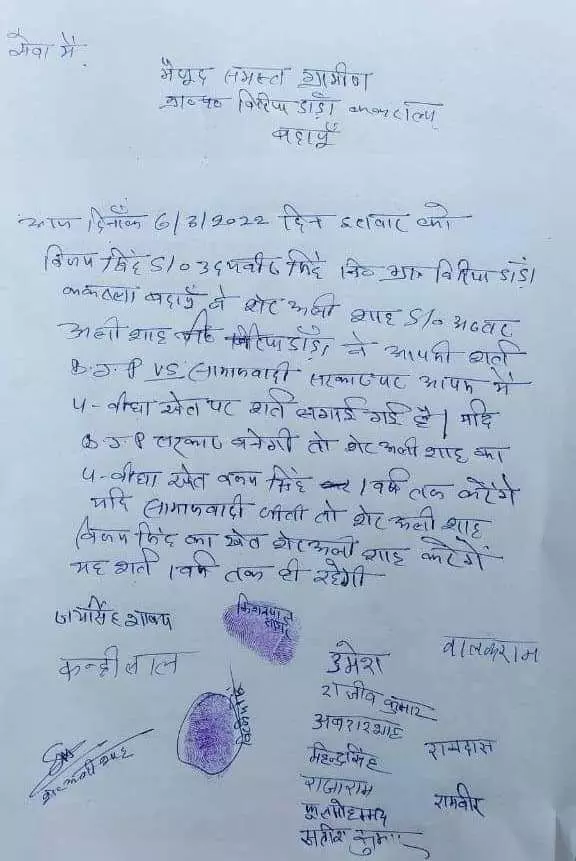 सेवा में.
मौजूद समस्त ग्रामीण
ग्राम व पो० बिरिया डांडा ककराला
बदायूँ
आज दिनाँक 6/3/2022 दिन इतवार को
विजय सिंह S/o उदयवीर सिंह नि० ग्राम बिरिया डांडा
ककराला बदायूँ ने शेर अली शाह S/o अख्तर
अली शाह नि० बिरिया डांडा ने आपकी शर्त
B.J.P VS सामाजवादी सरकार पर आपस में
4 - बीघा खेत पर शर्त लगाई गई है। यदि
B.J.P सरकार बनेगी तो शेर अली शाह का
4 - बीघा खेत विजय सिंह 1 वर्ष तक करेंगे
यदि सामाजवादी जीती तो शेर अली शाह
विजय सिंह का खेत शेर अली शाह करेंगें
यह शर्त 1 वर्ष तक ही रहेगी
जयसिंह शाक्य
किशनपाल
कन्हीलाल
उमेश
वालकराम
राजीव कुमार
अबरारशाह
रामदास
महेन्द्रसिंह
राजाराम
रामवीर
गुलमोहम्मद
सतीश कुमार
शेर अली शाह